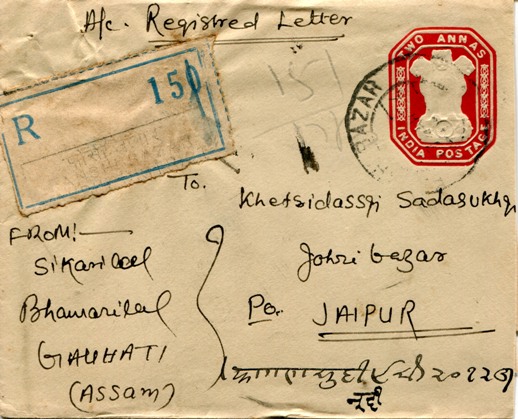 A/c. Registred Letter
TWO ANNAS
INDIA POSTAGE
R 150
BAZAR
To.
Khetsidassji Sadasukhji
Johri bazar
Po. JAIPUR
FROM:-
Sikarilal
Bhamarilal
GAUHATI
(ASSAM)